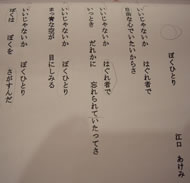 ぼくひとり
江口 あけみ
いいじゃないか はぐれ者で
自由な心でいたいからさ
いいじゃないか はぐれ者で
いっとき だれかに 忘れられていたってさ
いいじゃないか ぼくひとり
まっ青な空が 目にしみる
いいじゃないか ぼくひとり
ぼくは ぼくを さがすんだ